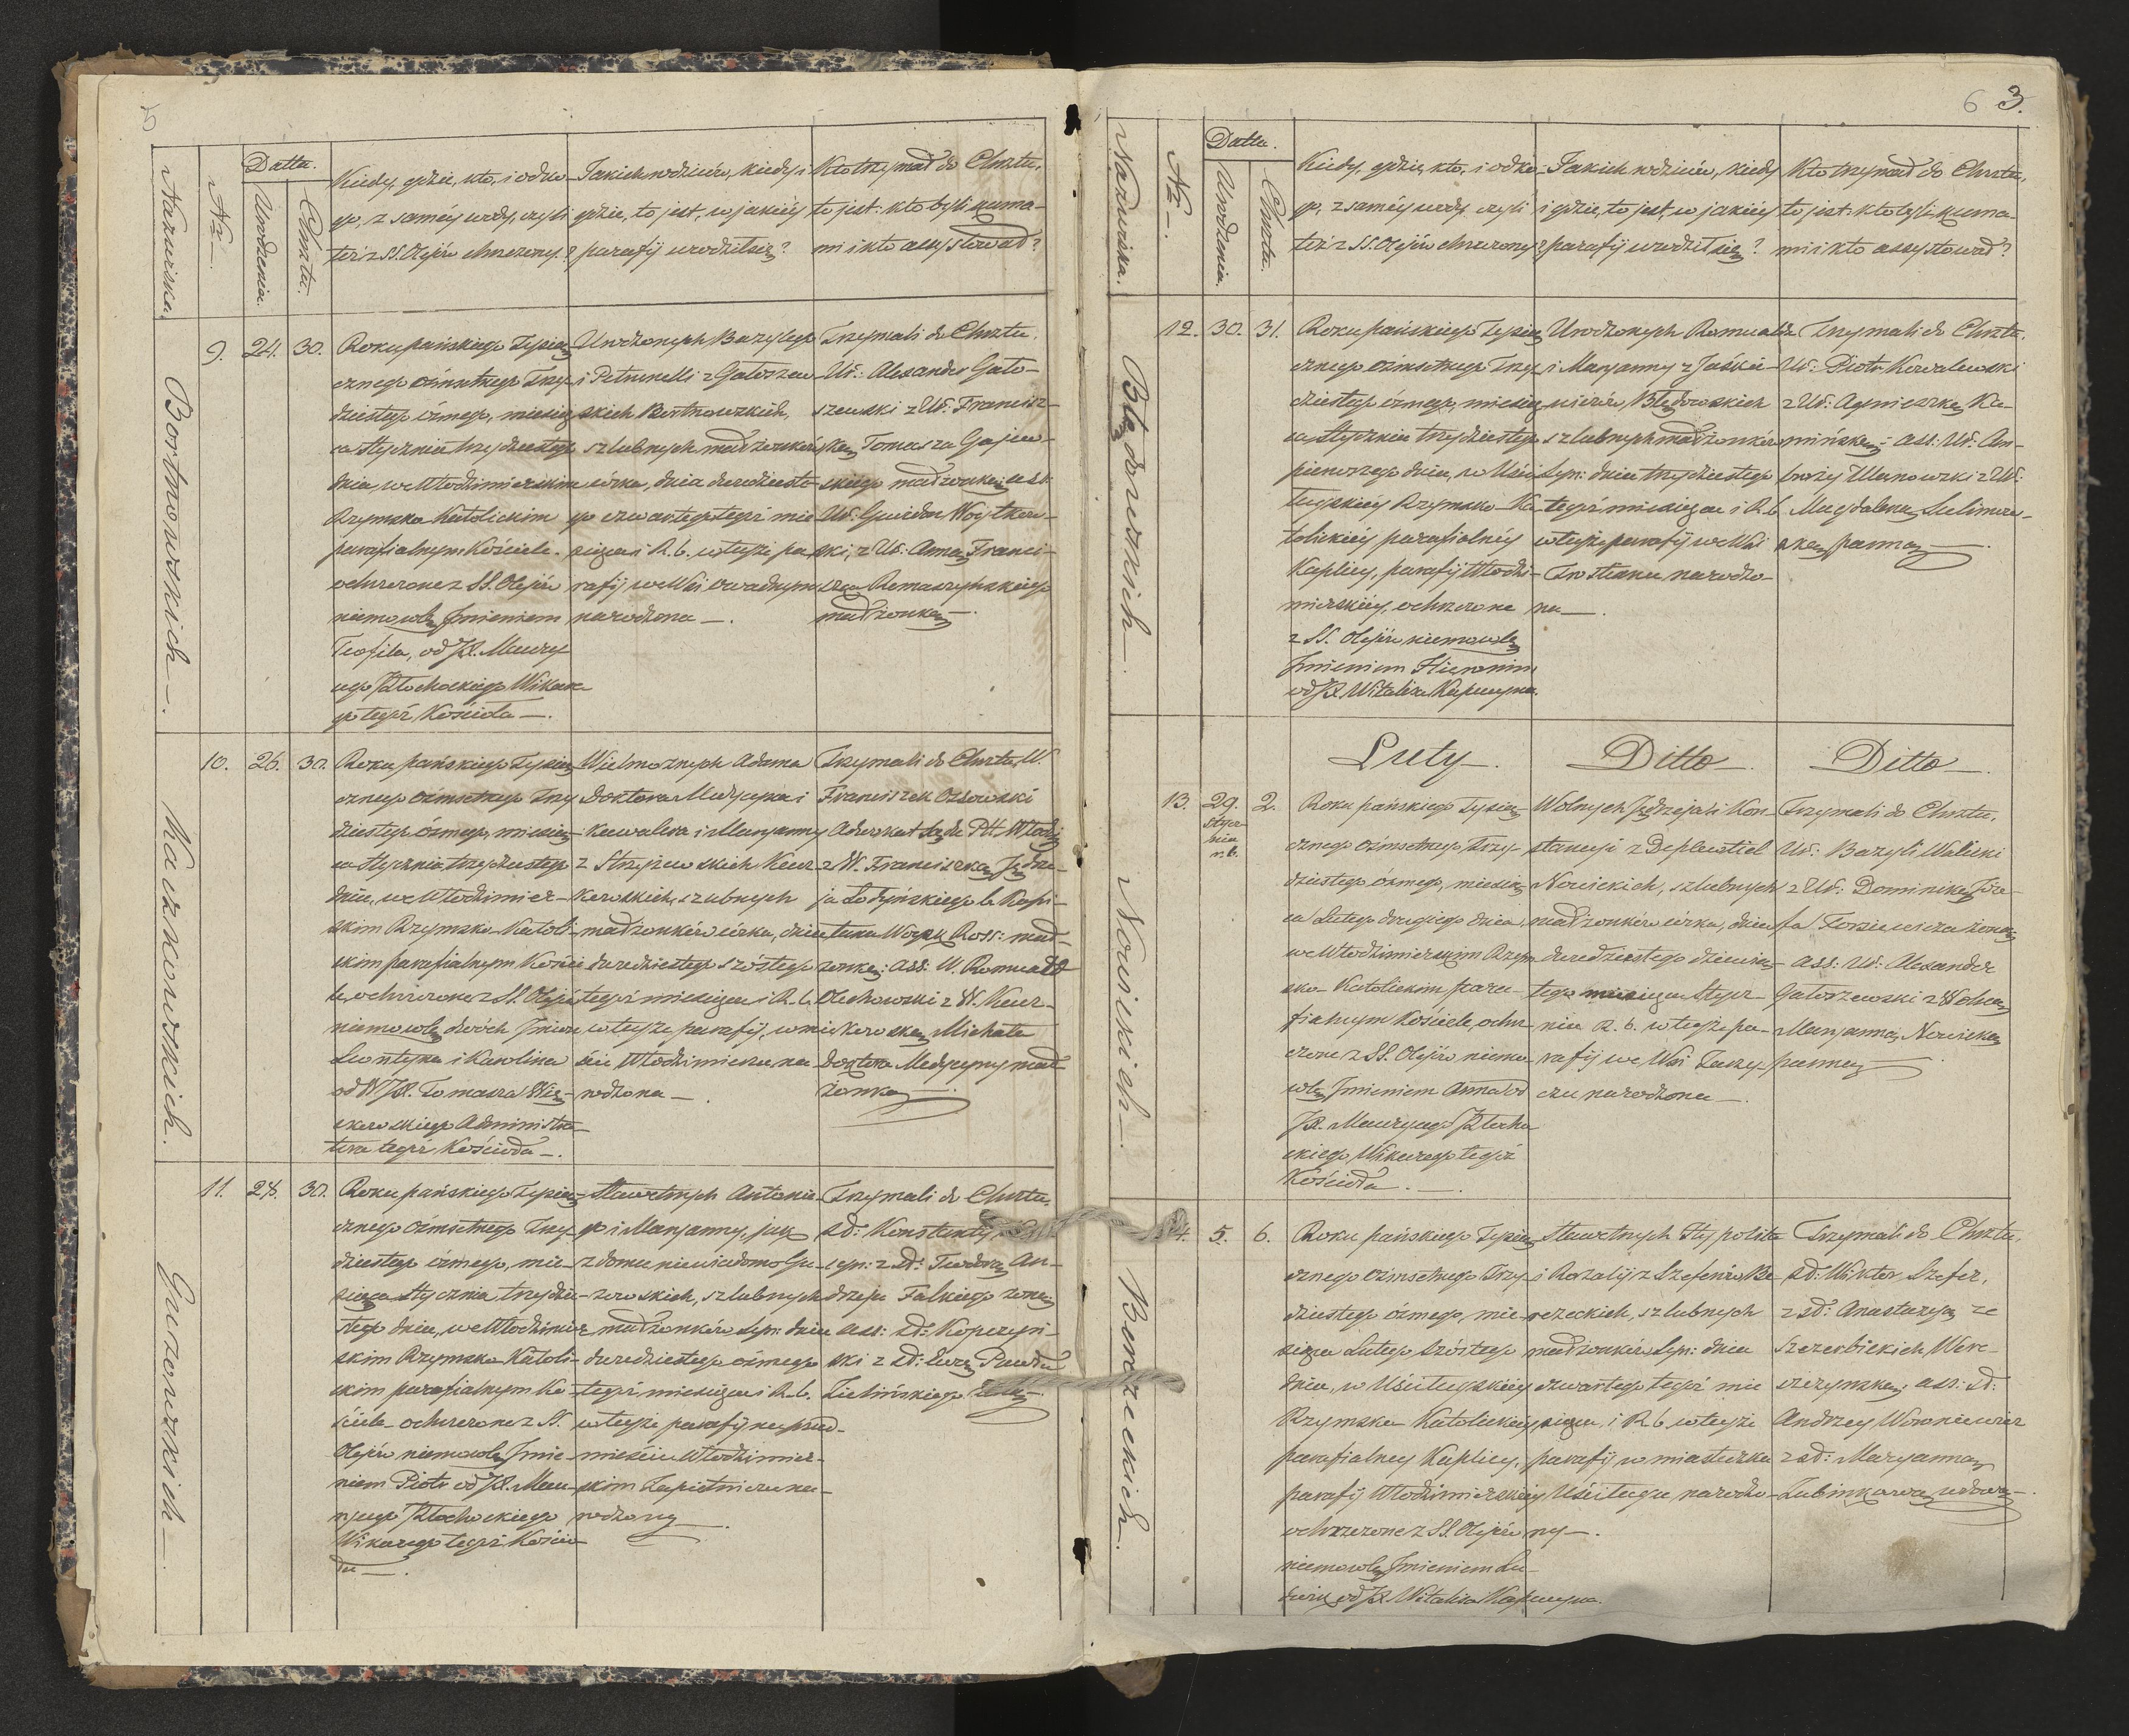 5
Nazwiska.
No
Datta.
Urodzenia.
Chrztu.
Kiedy, gdzie, kto, i od ko-
go, z saméy wody, czyli
też z SS. Olejów chrzczony?
Jakich rodziców, kiedy i
gdzie, to jest, w jakiéy
parafij urodził się?
Kto trzymał do Chrztu,
to jest: kto byli kuma-
mi i kto assystował?
Bortnowskich
9. 24. 30.
Roku pańskiego Tysiąc
cznego ośmsetnego Trzy
dziestego ósmego, miesią
ca Stycznia trzydziestego
dnia, we Włodzimierskim
Rzymsko Katolickim
parafialnym Kościele.
ochrzczone z SS. Olejów
niemowlę Imieniem
Teofila, od JX. Maury
cego Płochockiego Wikare
go tegoż Kościoła
Urodzonych Bazylego
i Petrunelli z Gatoszew
skich Bortnowskich,
szlubnych małżonków
córka, dnia dwódzieste
go czwartego tegoż mie
siąca i R. b. w tejże pa
rafij we Wsi Owadnym
narodzona
Trzymali do Chrztu.
Ur: Alexander Gato-
szewski z Ur: Francisz-
ką Tomasza Gajew-
skiego małżonką; ass:
Ur: Gwidon Woytkow-
ski, z Ur: Anną Franci-
szka Romaszyńskiego
małżonką
Kaczkowskich.
10. 26. 30.
Roku pańskiego Tysiąc
cznego ośmsetnego Trzy
dziestego ósmego, miesią-
ca Stycznia trzydziestego
dnia, we Włodzimier-
skim Rzymsko Katoli-
ckim parafialnym Kości
le, ochrzczone z SS. Olejów
niemowlę dwóch Imion
Leontyna i Karolina
od W JX. Tomasza
Administra-
tora tegoż Kościoła
Wielmożnych Adama
Doktora Medycyny i
Kawalera i Maryanny
z Strzyżewskich Kacz-
kowskich, szlubnych
małżonków córka, dnia
dwódziestego szóstego
tegoż miesiąca i R. b.
w tejże parafij, w mie
ście Włodzimierzu na
rodzona
Trzymali do Chrztu W.
Franciszek Ossowski
Adwokat Sądu Ptt. Włodz
z W. Franciszką Jędrze-
ja Łodyńskiego b. Kapi-
tana Woysk Ross: mał-
żonką; ass: W. Romuald
Olechowski z W. Kacz-
kowską Michała
Doktora Medycyny mał
żonką
Gurzowskich
11. 28. 30.
Roku pańskiego Tysiąc
cznego ośmsetnego Trzy-
dziestego ósmego, mie-
siąca Stycznia trzydzie-
stego dnia, we Włodzimier
skim Rzymsko Katoli-
ckim parafialnym Ko-
ściele ochrzczone z SS.
Olejów niemowle Imie-
niem Piotr od JX. Mau-
rycego Płochockiego
Wikarego tegoż Kościo
ła
Sławetnych Antonie
go i Maryanny, jak
z domu niewiadomo Gu-
rzowskich, szlubnych
małżonków syn: dnia
dwódziestego ósmego
tegoż miesiąca i R. b.
w tejże parafij na przed-
mieściu Włodzimier-
skim Zapiatniczu na-
rodzony
Trzymali do Chrztu.
Sd: Konstanty
syn: z Sd: Teodorą An-
drzeja Falkiego żoną
ass: Sd: Kopczyń-
ski z Sd: Ewą Pawła
Zielińskiego żoną
6 3.
Nazwiska.
No
Datta.
Urodzenia.
Chrztu.
Kiedy, gdzie, kto, i od ko-
go, z saméy wody czyli
też z SS. Olejów chrzczony?
Jakich rodziców, kiedy
i gdzie, to jest, w jakiéy
parafij urodził się?
Kto trzymał do Chrztu,
to jest: kto byli kuma-
mi i kto assystował?
Błędowskich
12. 30. 31.
Roku pańskiego Tysiąc
cznego ośmsetnego Trzy
dziestego ósmego, miesią
ca Stycznia trzydziestego
pierwszego dnia, w Uści
ługskiéy Rzymsko-Ka-
tolickiéy parafialnéy
Kaplicy, parafij Włodzi-
mierskiéy, ochrzczone
z SS. Olejów niemowlę
Imieniem Hieronim
od JX. Witalisa Kapucyna.
Urodzonych Romualda
i Maryanny z Jaśkie-
wiczów, Błędowskich
szlubnych małżonków
Syn: dnia trzydziestego
tegoż miesiąca i R. b.
w tejże parafij we Wsi
Trostianu narodzo-
na
Trzymali do Chrztu.
Ur: Piotr Kowalewski
z Ur: Agnieszką Ka-
mińską; ass: Ur. Am-
broży Ulanowski z Ur:
Magdaleną Sulimow-
ską panną
Luty
Ditto
Ditto
Nowickich
13. 29. Stycz-
nia
r. b.
2.
Roku pańskiego Tysią-
cznego ośmsetnego Trzy-
dziestego ósmego, miesią-
ca Lutego drugiego dnia,
we Włodzimierskim Rzym
sko-Katolickim para-
fialnym Kościele, ochrz-
czone z SS. Olejów niemo-
wlę Imieniem Anna od
JX. Maurycego Płocho
ckiego, Wikarego tegoż
Kościoła
Wolnych Jędrzeja i Kon-
stancyi z
Nowickich, szlubnych
małżonków córka, dnia
dwódziestego dziewią-
tego miesiąca Stycz-
nia R. b. w tejże pa-
rafij we Wsi Zarzy-
czu narodzona
Trzymali do Chrztu,
Ur: Bazyli Walicki
z Ur: Dominiką Józe-
fa Torsiewicza żoną
ass: Ur: Alexander
Gatoszewski z Wolną
Maryanną Nowicką
panną
Berezeckich
14. 5. 6.
Roku pańskiego Tysiąc
cznego ośmsetnego Trzy-
dziestego ósmego, mie-
siąca Lutego szóstego
dnia, w Uściługskiéy
Rzymsko Katolickiéy
parafialney Kaplicy,
parafij Włodzimierskiéy
ochrzczone z SS. Olejów
niemowlę Imieniem Lu-
dwik, od JX Witalisa Kapucyna.
Sławetnych Hypolita
i Rozalij z Szeferów Be
rezeckich, szlubnych
małżonków Syn: dnia
czwartego tegoż mie
siąca, i R. b. w tejże
parafij w miasteczku
Uściługu narodzo-
ny
Trzymali do Chrztu,
Sd: Wiktor Szefer,
z Sd: Anastazyą ze
Szczerbickich Were-
szczyńską; ass: Sd:
Andrzey Woroniewicz
z Sd: Maryanną
Łubinkową wdową